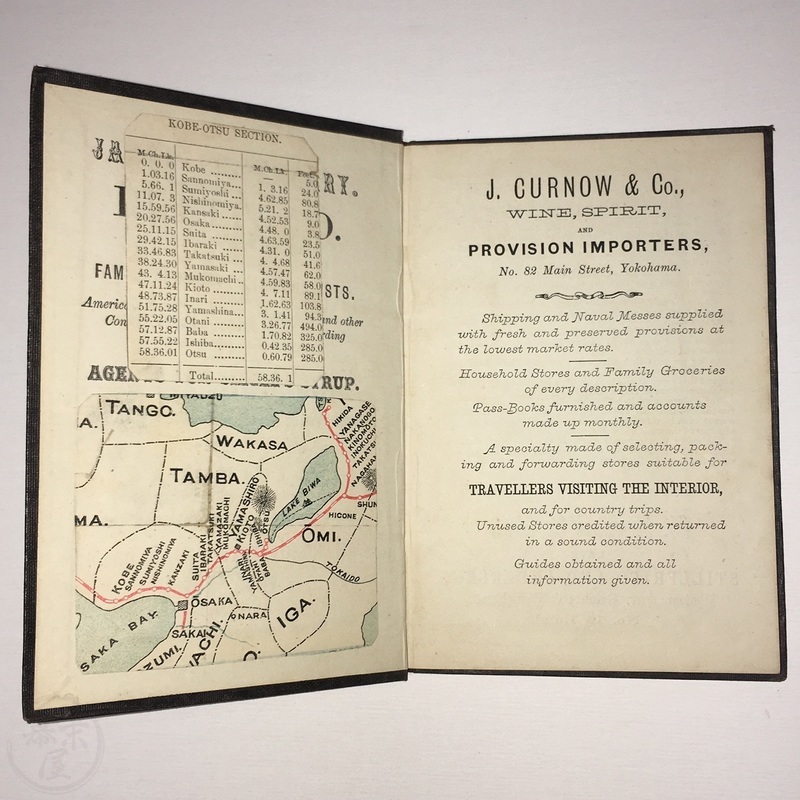 KOBE-OTSU SECTION.
M.Ch.Lk. M.Ch.Lk. Feet
0. 0. 0 Kobe ........ — 5.0
1.03.16 Sannomiya... 1. 3.16 24.0
5.66. 1 Sumiyoshi ... 4.62.85 80.8
11.07. 3 Nishinomiya. 5.21. 2 18.7
15.59.56 Kansaki ...... 4.52.53 9.0
20.27.56 Osaka ......... 4.48. 0 3.8
25.11.15 Suita ......... 4.63.59 23.5
29.42.15 Ibaraki ...... 4.31. 0 51.0
33.46.83 Takatsuki ... 4. 4.68 41.6
38.24.30 Yamasaki ... 4.57.47 62.0
43. 4.13 Mukomachi .. 4.59.83 58.0
47.11.24 Kioto ......... 4. 7.11 89.1
48.73.87 Inari ......... 1.62.63 103.8
51.75.28 Yamashina... 3. 1.41 94.3
55.22.05 Otani ......... 3.26.77 494.0
57.12.87 Baba ......... 1.70.82 325.0
57.55.22 Ishiba......... 0.42 35 285.0
58.36.01 Otsu ......... 0.60.79 285.0
Total......... 58.36. 1
JA RY.
FAM STS.
Americ nd other
Con ding
AGEN RUP.
TANGO.
A.
WAKASA
TAMBA.
MA.
HIKIDA
YANAGASE
NAKANOGO
KINOMOTO
INOKUCHI
TAKATSU
NAGAHAM
LAKE BIWA
HICONE
SHUN
ŌMI.
YAMASHIRO
KIOTO
OTSU
BABA
TOKAIDO
MUKOMACHI
YAMAZAKI
TAKATSUKI
IBARAKI
SUITA
KANZAKI
NISHINOMIYA
SUMIYOSHI
SANNOMIYA
KOBE
OSAKA
SAKA BAY.
SAKAI
NARA
IGA.
ZUMI.
ACHI.
O.
J. CURNOW & Co.,
WINE, SPIRIT,
AND
PROVISION IMPORTERS,
No. 82 Main Street, Yokohama.
Shipping and Naval Messes supplied
with fresh and preserved provisions at
the lowest market rates.
Household Stores and Family Groceries
of every description.
Pass-Books furnished and accounts
made up monthly.
A specialty made of selecting, pack-
ing and forwarding stores suitable for
TRAVELLERS VISITING THE INTERIOR,
and for country trips.
Unused Stores credited when returned
in a sound condition.
Guides obtained and all
information given.